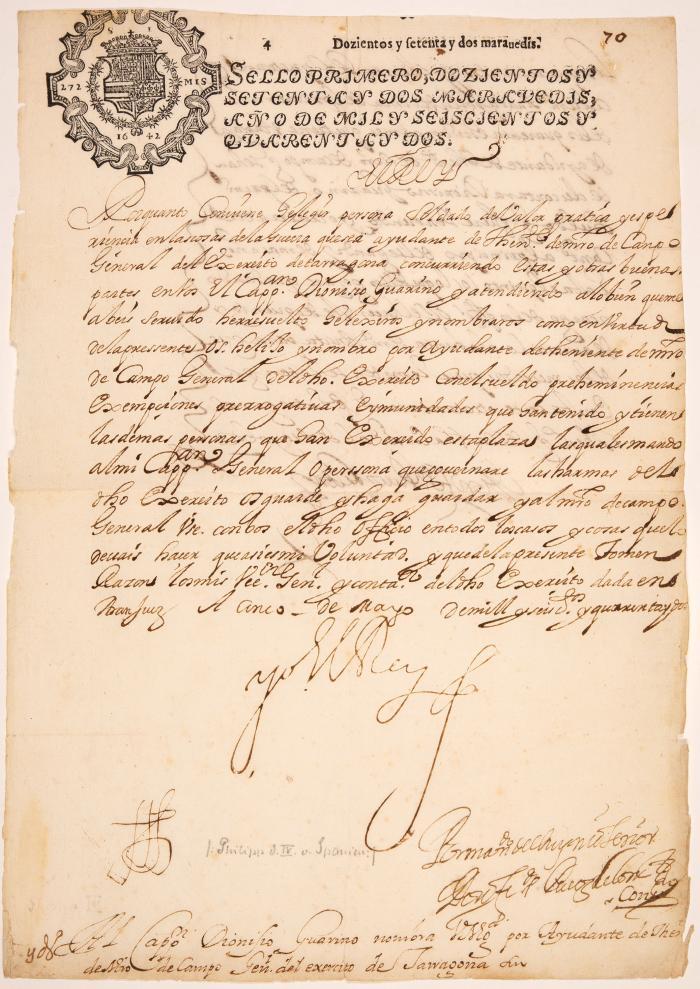 4 Dozientos y setenta y dos marauedis. 70
272 MIS
1642
SELLO PRIMERO, DOZIENTOS Y
SETENTA Y DOS MARAVEDIS,
AÑO DE MIL Y SEISCIENTOS Y
QVARENTA Y DOS.
El Rey
Porquanto Conuiene Elegir persona soldado de Valor pratica y espe
riencia en las cosas de la Guerra que sea ayudante de Then.te de mro de Canpo
General del Exercito de tarragona concurriendo estas y otras buenas
partes en bos El Capp.an Dionisio Guarino y atendiendo a lo bien que me
abeis seruido he rresuelto Elexiros y nombraros como en birtud
de la pressente os helijo y nombro por Ayudante de theniente de mro
de Campo General del dho. Exercito Con el sueldo preheminencias
Exempsiones prerrogativas e ymunidades que han tenido y tienen
las demas personas que han Exercido esta plaza las quales mando
al mi Capp.an General o perssona que gouernare las harmas del
dho Exercito os guarde y haga guardar y al mro de campo
General Vse con bos el dho officio en todos los casos y cosas que lo
deuais hacer que asi es mi Voluntad, y que de la presente Tomen
Razon los mis Gen. y conta.or del dho Exercito dada en
Aranjuez A Cinco de Mayo de mill y seis.os y quarenta y dos
yo El Rey
/: Philipp d. IV. v. Spanien :/
Por man.do del Rey nr̃o señor
Al Capp.an Dionisio Guarino nombra V Mag.d por Ayudante de Then.
de Mro de Campo Gen. del exercito de Tarragona